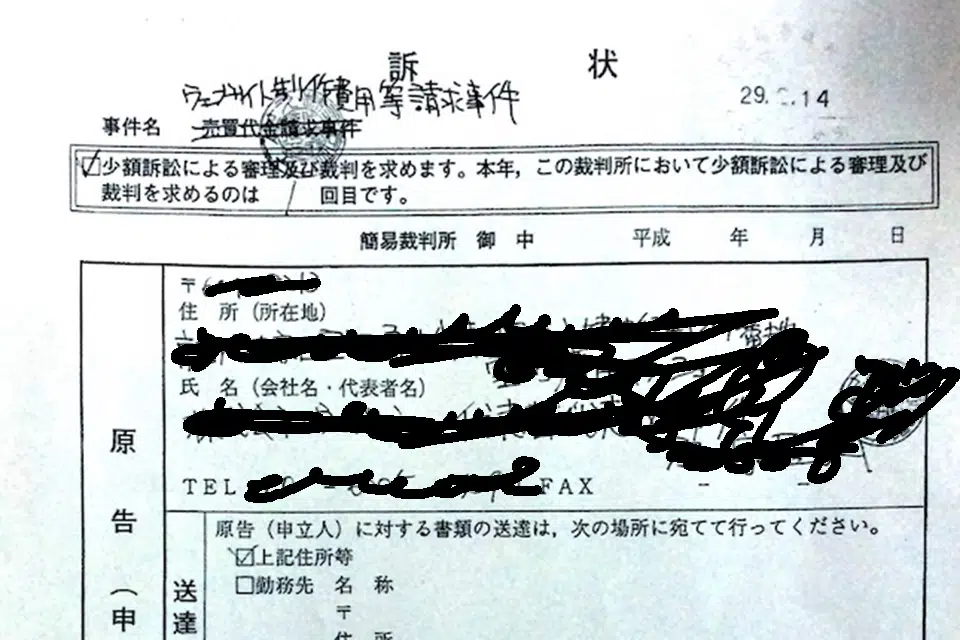 訴 状
29. .14
ウェブサイト制作費用等請求事件
事件名 売買代金請求事件
☑少額訴訟による審理及び裁判を求めます。本年，この裁判所において少額訴訟による審理及び
裁判を求めるのは / 回目です。
簡易裁判所 御 中 平成 年 月 日
〒
住 所 （所在地）
番地
氏 名 （会社名・代表者名）
TEL - - FAX - -
原告（申
原告（申立人）に対する書類の送達は，次の場所に宛てて行ってください。
☑上記住所等
□勤務先 名 称
〒
住 所
送達